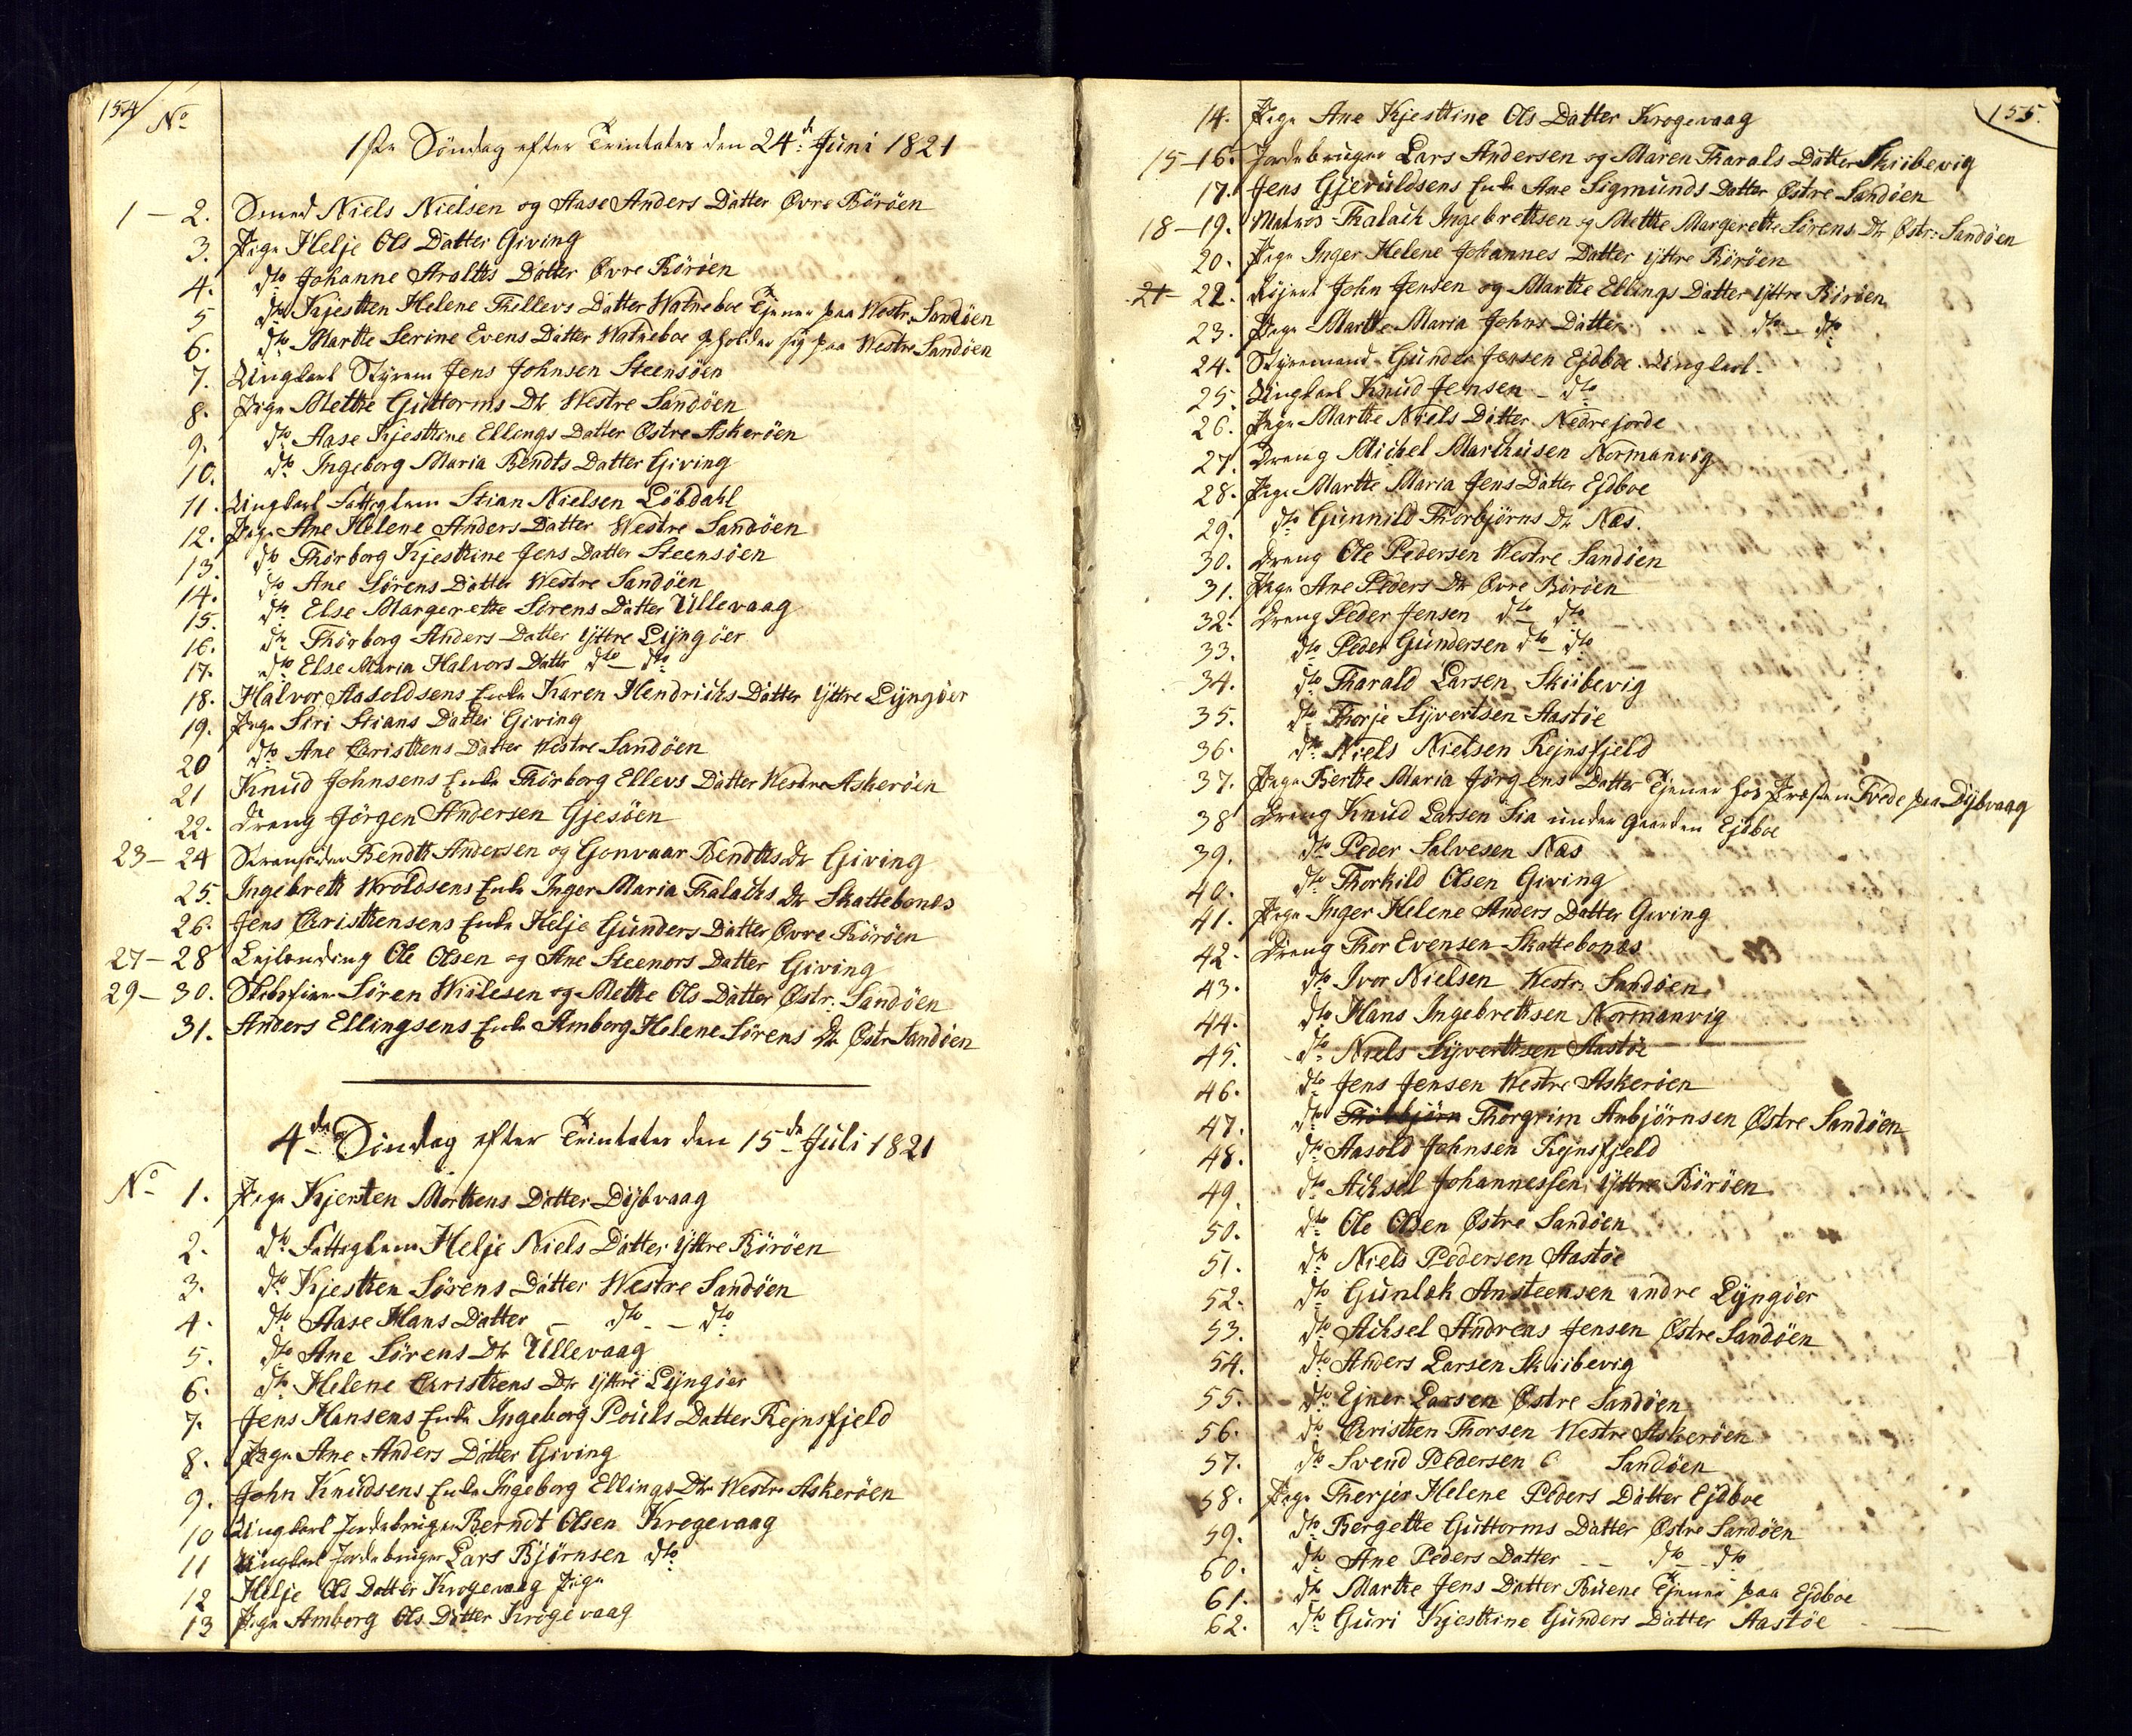 154
No
1ste Söndag efter Trinitates den 24de Juni 1821
1 – 2. Smed Niels Nielsen og Aase Anders Datter Øvre Börøen
3. Pige Helje Ols Datter Giving
4. dto Johanne Aralds Datter Øvre Börøen
5 dto Kjestten Helene Thellevs Datter Watneboe Tjener paa Westr. Sandöen
6. dto Marthe Serine Evens Datter Watneboe opholder sig paa Westre Sandöen
7. Ungkarl Styrm Jens Johnsen Steensöen
8. Pige Methe Guttorms Dtr Westre Sandöen
9. dto Aase Kjesttine Ellings Datter Østre Askeröen
10. dto Ingeborg Maria Bendts Datter Giving
11. Ungkarl Fattiglem Stian Nielsen Löbdahl
12. Pige Ane Helene Anders Datter Westre Sandöen
13. dto Thorborg Kjesttine Jens Datter Steensöen
14. dto Ane Sörens Datter Westre Sandöen
15. dto Else Margerethe Sörens Datter Ullevaag
16. dto Thorborg Anders Datter Yttre Lyngöer
17. dto Else Maria Halvors Datter dto – dto
18. Halvor Aasoldsens Enke Karen Hendrichs Datter Yttre Lyngöer
19. Pige Siri Stians Datter Giving
20 dto Ane Christtens Datter Westre Sandöen
21 Knud Johnsens Enke Thorborg Ellevs Datter Westre Askeröen
22. Dreng Jörgen Andersen Gjesöen
23 – 24 Strandsidder Bendt Andersen og Gonvaar Bendts Dtr Giving
25. Ingebrett Wroldsens Enke Inger Maria Thalachs Dtr Skattebones
26. Jens Christtensens Enke Helje Gunders Datter Øvre Böröen
27 – 28 Lejlending Ole Olsen og Ane Steenors Datter Giving
29 – 30. Skibstimr Sören Wiilesen og Methe Ols Datter Østr. Sandöen
31. Anders Ellingsens Enke Amborg Helene Sörens Dtr Østr Sandöen
4de Söndag efter Trinitates den 15de Juli 1821
No 1. Pige Kjersten Morttens Datter Dybvaag
2. dto Fattiglem Helje Niels Datter Yttre Böröen
3. dto Kjestten Sörens Datter Westre Sandöen
4. dto Aase Hans Datter – dto – dto
5. dto Ane Sörens Dtr Ullevaag
6. dto Helene Christtens Dtr Yttre Lyngöer
7. Jens Hansens Enke Ingeborg Pouls Datter Rejnsfjeld
8. Pige Ane Anders Datter Giving
9. John Knudsens Enke Ingeborg Ellings Dtr Westre Askeröen
10 Ungkarl Jordebruger Berndt Olsen Krogevaag
11 Ungkarl Jordebruger Lars Björnsen dto
12 Helje Ols Datter Krogevaag Pige
13 Pige Amborg Ols Datter Krogevaag
155.
14. Pige Ane Kjesttine Ols Datter Krogevaag
15–16. Jordebruger Lars Andersen og Maren Tharals Datter Skiibevig
17. Jens Gjeruldsens Enke Ane Sigmunds Datter Østre Sandöen
18–19. Matros Thalach Ingebrethsen og Methe Margerethe Sörens Dtr Østr. Sandöen
20. Pige Inger Helene Johannes Datter Yttre Böröen
21– 22. John Jensen og Marthe Ellings Datter Yttre Böröen
23. Pige Marthe Maria Johns Datter dto – dto
24. Styremand Gunder Jensen Ejdboe Ungkarl
25. Ungkarl Knud Jensen – dto
26. Pige Marthe Niels Datter Nedrejorde
27. Dreng Michel Marchusen Normanvig
28. Pige Marthe Maria Jens Datter Ejdboe
29. dto Gunnild Thorbjörns Dtr Næs.
30. Dreng Ole Pedersen Westre Sandöen
31. Pige Ane Peders Dtr Øvre Böröen
32. Dreng Peder Jensen dto – dto
33. dto Peder Gundersen dto – dto
34. dto Tharald Larsen Skiibevig
35. dto Thorje Syvertsen Aastöe
36. dto Niels Nielsen Rejnsfjeld
37. Pige Berthe Maria Jörgens Datter Tjener hos Præsten Tvede paa Dybvaag
38 Dreng Knud Larsen Lia under Gaarden Ejdboe
39. dto Peder Salvesen Næs
40. dto Thorkild Olsen Giving
41. Pige Inger Helene Anders Datter Giving
42. Dreng Thor Evensen Skattebones
43. dto Ivor Nielsen Westr. Sandöen
44. dto Hans Ingebrethsen Normanvig
45. dto Niels Syverttsen Aastöe
46. dto Jens Jensen Westre Askeröen
47. dto Thorbjörn Thorgrim Anbjörnsen Østre Sandöen
48. dto Aasold Johnsen Rejnsfjeld
49. dto Achsel Johannessen Yttre Böröen
50. dto Ole Olsen Østre Sandöen
51. dto Niels Pedersen Aastöe
52. dto Gunlek Ansteensen indre Lyngöer
53. dto Achsel Andreas Jensen Østre Sandöen
54. dto Anders Larsen Skiibevig
55. dto Ejner Larsen Østre Sandöen
56. dto Christten Thorsen Westre Askeröen
57. dto Svend Pedersen Sandöen
58. Pige Therjer Helene Peders Datter Ejdboe
59. dto Bergethe Guttorms Datter Østre Sandöen
60. dto Ane Peders Datter – – dto – dto
61. dto Marthe Jens Datter Buene Tjener paa Ejdboe
62. dto Guri Kjesttine Gunders Datter Aastöe